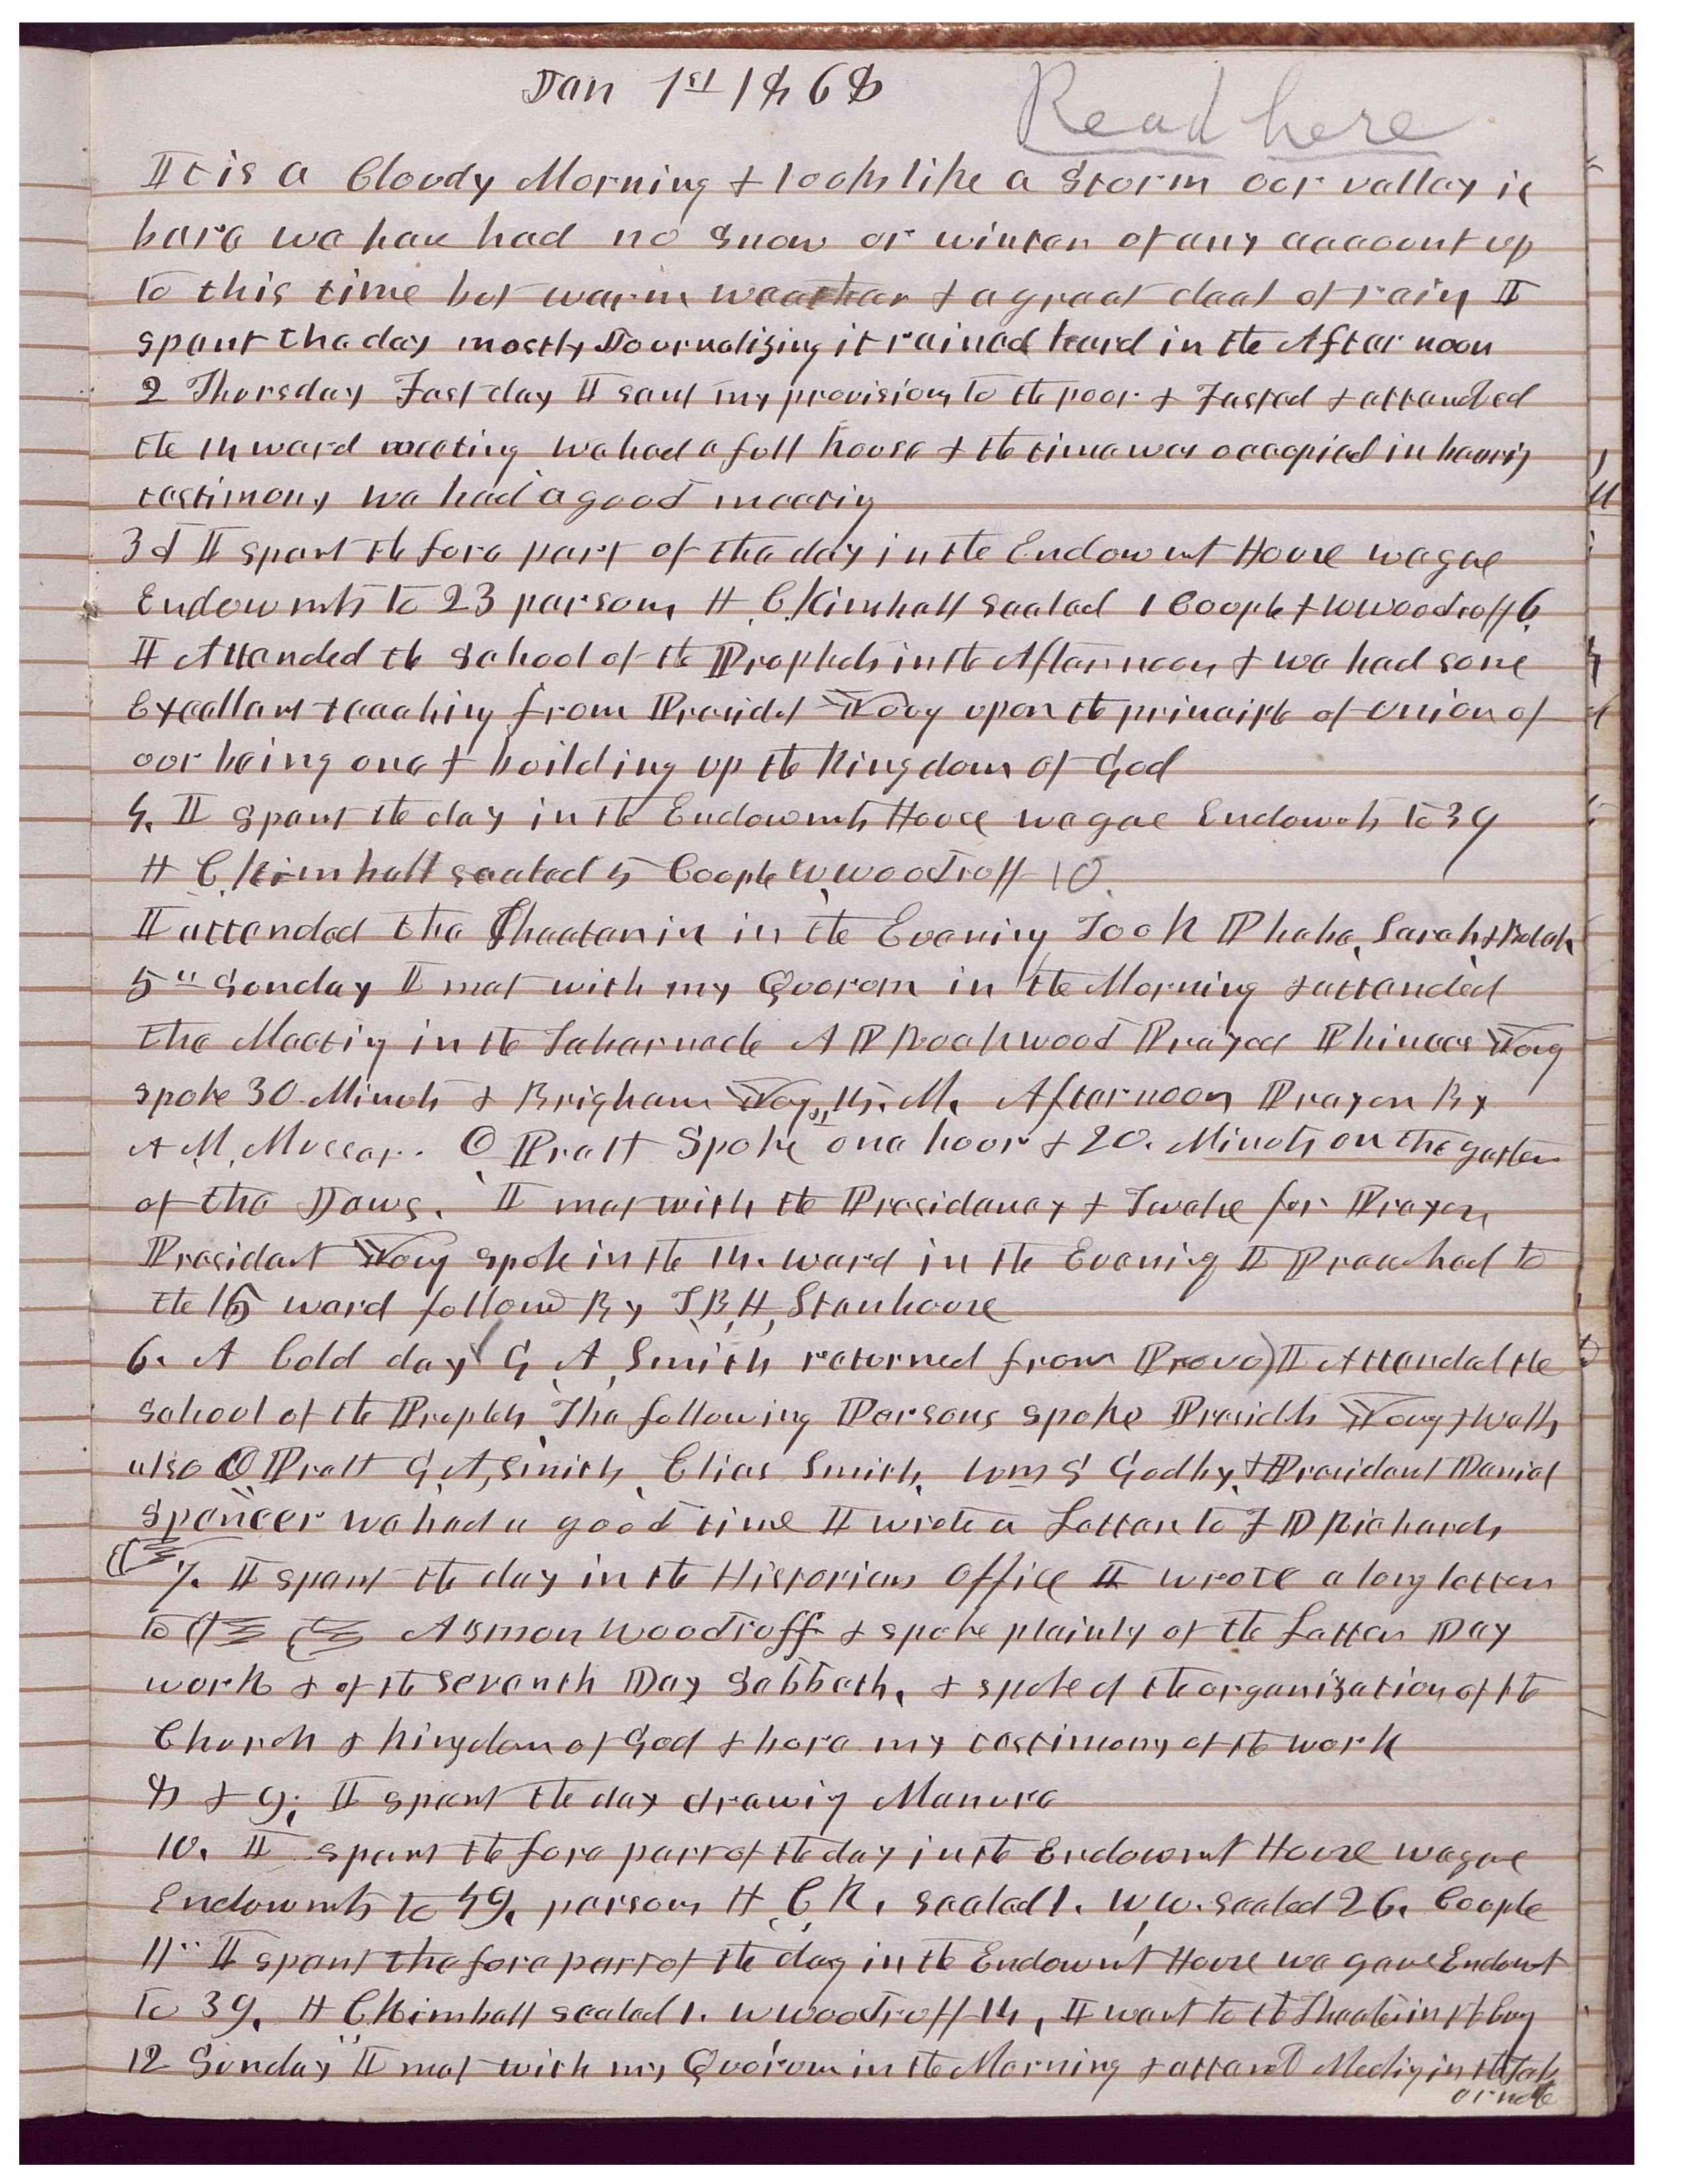 Jan 1st 1868
Read here
It is a Cloudy Morning & looks like a Storm our valley is
bare we have had no snow or winter of any account up
to this time but warm weather & a great deal of rain I
spent the day mostly Journalizing it rained hard in the After noon
2 Thursday Fast day I sent my provisions to the poor & Fasted & attended
the 14 ward meeting we had a full house & the time was occupied in hearing
testimony we had a good meetig
3d I spent the fore part of the day in the Endowmt House we gave
Endowmts to 23 persons H. C. Kimball sealed 1 Couple & W Woodruff 6.
I Attended the School of the Prophets in the Afternoon & we had some
Excellent teaching from Presidet Young upon the principle of union of
our being one & building up the Kingdom of God
4. I spent the day in the Endowmts House we gave Endowmts to 39
H C. Kimball sealed 5 Couple W. Woodruff 10.
I attended the Theater in in the Evening Took Phebe, Sarah & Bulah
5th Sunday I met with my Quorom in the Morning & attended
the Meetig in the Tabernacle A P Rockwood Prayed Phineas Young
spoke 30 Minuts & Brigham Young 45. M. Afternoon Prayer By
A. M. Musser. O Pratt Spoke one hour & 20. Minuts on the gathering
of the Jews. I met with the Presidency & Twelve for Prayer
President Young spoke in the 14. ward in the Evenig I Preached to
the 15 ward followd By T. B. H. Stenhouse
6. A Cold day G. A. Smith returned from Provo) I Attended the
School of the Prophets The following Persons spoke Presidts Young & Wells
also O Pratt G. A. Smith, Elias Smith, Wm S Godby, & President Daniel
Spencer we had a good time I wrote a Letter to F D Richards
7. I spent the day in the Historians Office I wrote a long letter
to Asmon Woodruff & spoke plainly of the Latter Day
work & of the Seventh Day Sabbath, & spoke of the organization of the
Church & kingdom of God & bore my testimony of the work
8 & 9, I spent the day drawig Manure
10. I spent the fore part of the day in the Endowmt House we gave
Endowmts to 49, persons H. C. K. sealed 1. W. W. sealed 26. Couple
11" I spent the fore part of the day in the Endowmt House we gave Endowmt
to 39, H C Kimball sealed 1. W Woodruff 14, I went to the Theater in the Evng
12 Sunday I met with my Quorum in the Morning & attend Meetig in the Tab
ernacle